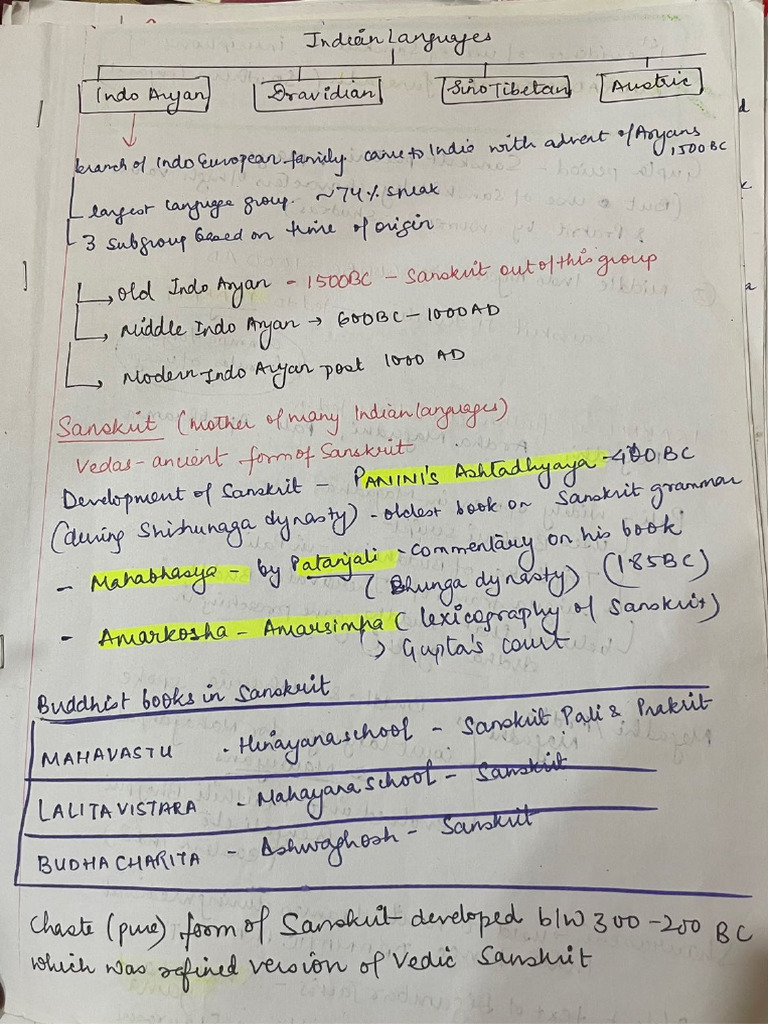 Indian Languages
Indo Aryan Dravidian Sino Tibetan Austric
branch of Indo European family. came to India with advent of Aryans
1500 BC
largest language group. ~74% speak
3 subgroup based on time of origin
Old Indo Aryan - 1500BC - Sanskrit out of this group
Middle Indo Aryan → 600BC - 1000AD
Modern Indo Aryan post 1000 AD
Sanskrit (mother of many Indian languages)
Vedas - ancient form of Sanskrit
Development of Sanskrit - PANINI's Ashtadhyaya - 400 BC
(during Shishunaga dynasty) - oldest book on Sanskrit grammar
- Mahabhasya - by Patanjali - commentary on his book
(Shunga dynasty) (185BC)
- Amarkosha - Amarsimha (lexicography of Sanskrit)
Gupta's court
Buddhist books in Sanskrit
MAHAVASTU - Hinayana school - Sanskrit Pali & Prakrit
LALITAVISTARA - Mahayana school - Sanskrit
BUDHACHARITA - Ashwaghosh - Sanskrit
Chaste (pure) form of Sanskrit developed b/w 300 - 200 BC
which was refined version of Vedic Sanskrit